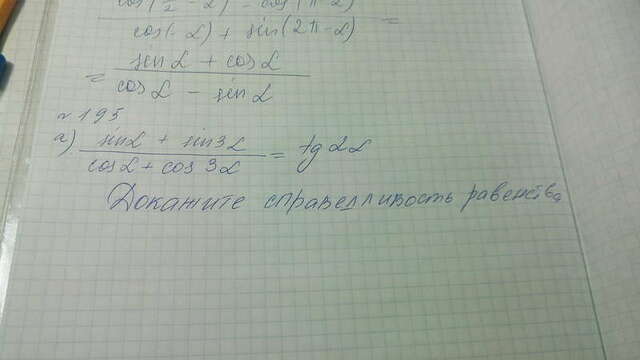 cos(π/2 - α) - cos(π - α)
cos(-α) + sin(2π - α) =
= sin α + cos α
cos α - sin α
№ 195
а) sin α + sin 3α
cos α + cos 3α = tg 2α
Докажите справедливость равенства